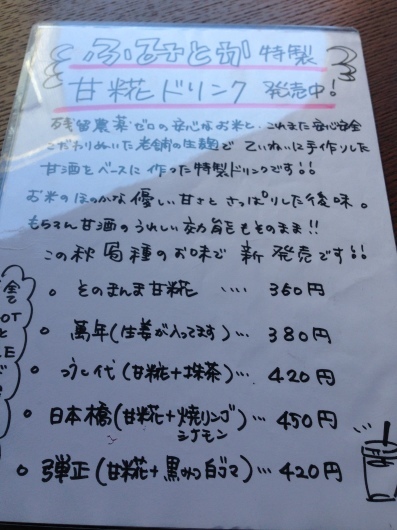 ふるさとか 特製
甘糀ドリンク 発売中!
残留農薬ゼロの安心なお米と、これまた安心安全
こだわりぬいた老舗の生麹で ていねいに手作りした
甘酒をベースに作った特製ドリンクです!!
お米のほのかな優しい甘さとさっぱりした後味。
もちろん甘酒のうれしい効能もそのまま!!
この秋 種のお味で新発売です!!
そのまんま甘糀 … 360円
萬年(生姜が入ってます)… 380円
つし代(甘糀+抹茶)… 420円
日本橋(甘糀+焼リンゴ … 450円
シナモン
弾正(甘糀+黒みつ白ゴマ)… 420円
OT
と
LE